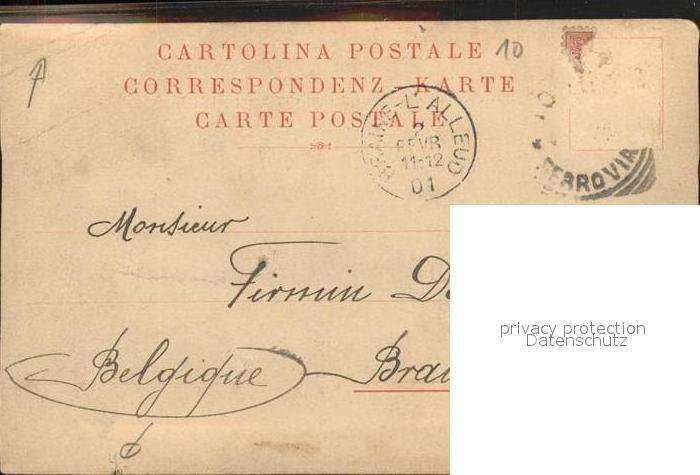 CARTOLINA POSTALE 10
CORRESPONDENZ-KARTE
CARTE POSTALE
BRAINE-L'ALLEUD
2
FEVR
11-12
01
FERROVIA
Monsieur
Firmin D
Belgique Brai
privacy protection
Datenschutz